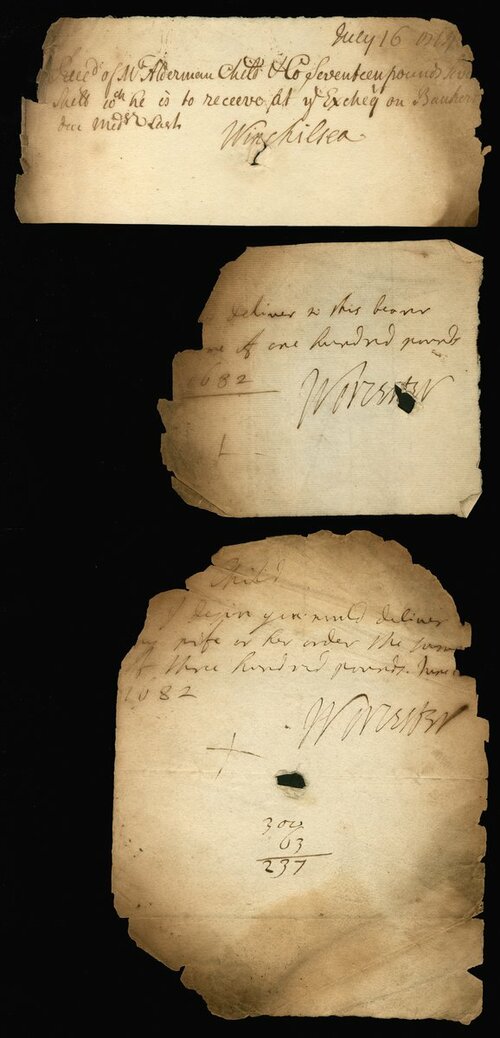 July 16
Reced of Mr Alderman Child & Co Seventeen pounds
Shills wch he is to receeve at ye Excheq on
due Midsr Last
Winchilsea
deliver to this bearer
of one hundred pounds
1682
Worcester
Child
I desire you would deliver
my wife or her order the sum
of three hundred pounds. June
1682
Worcester
300
63
237